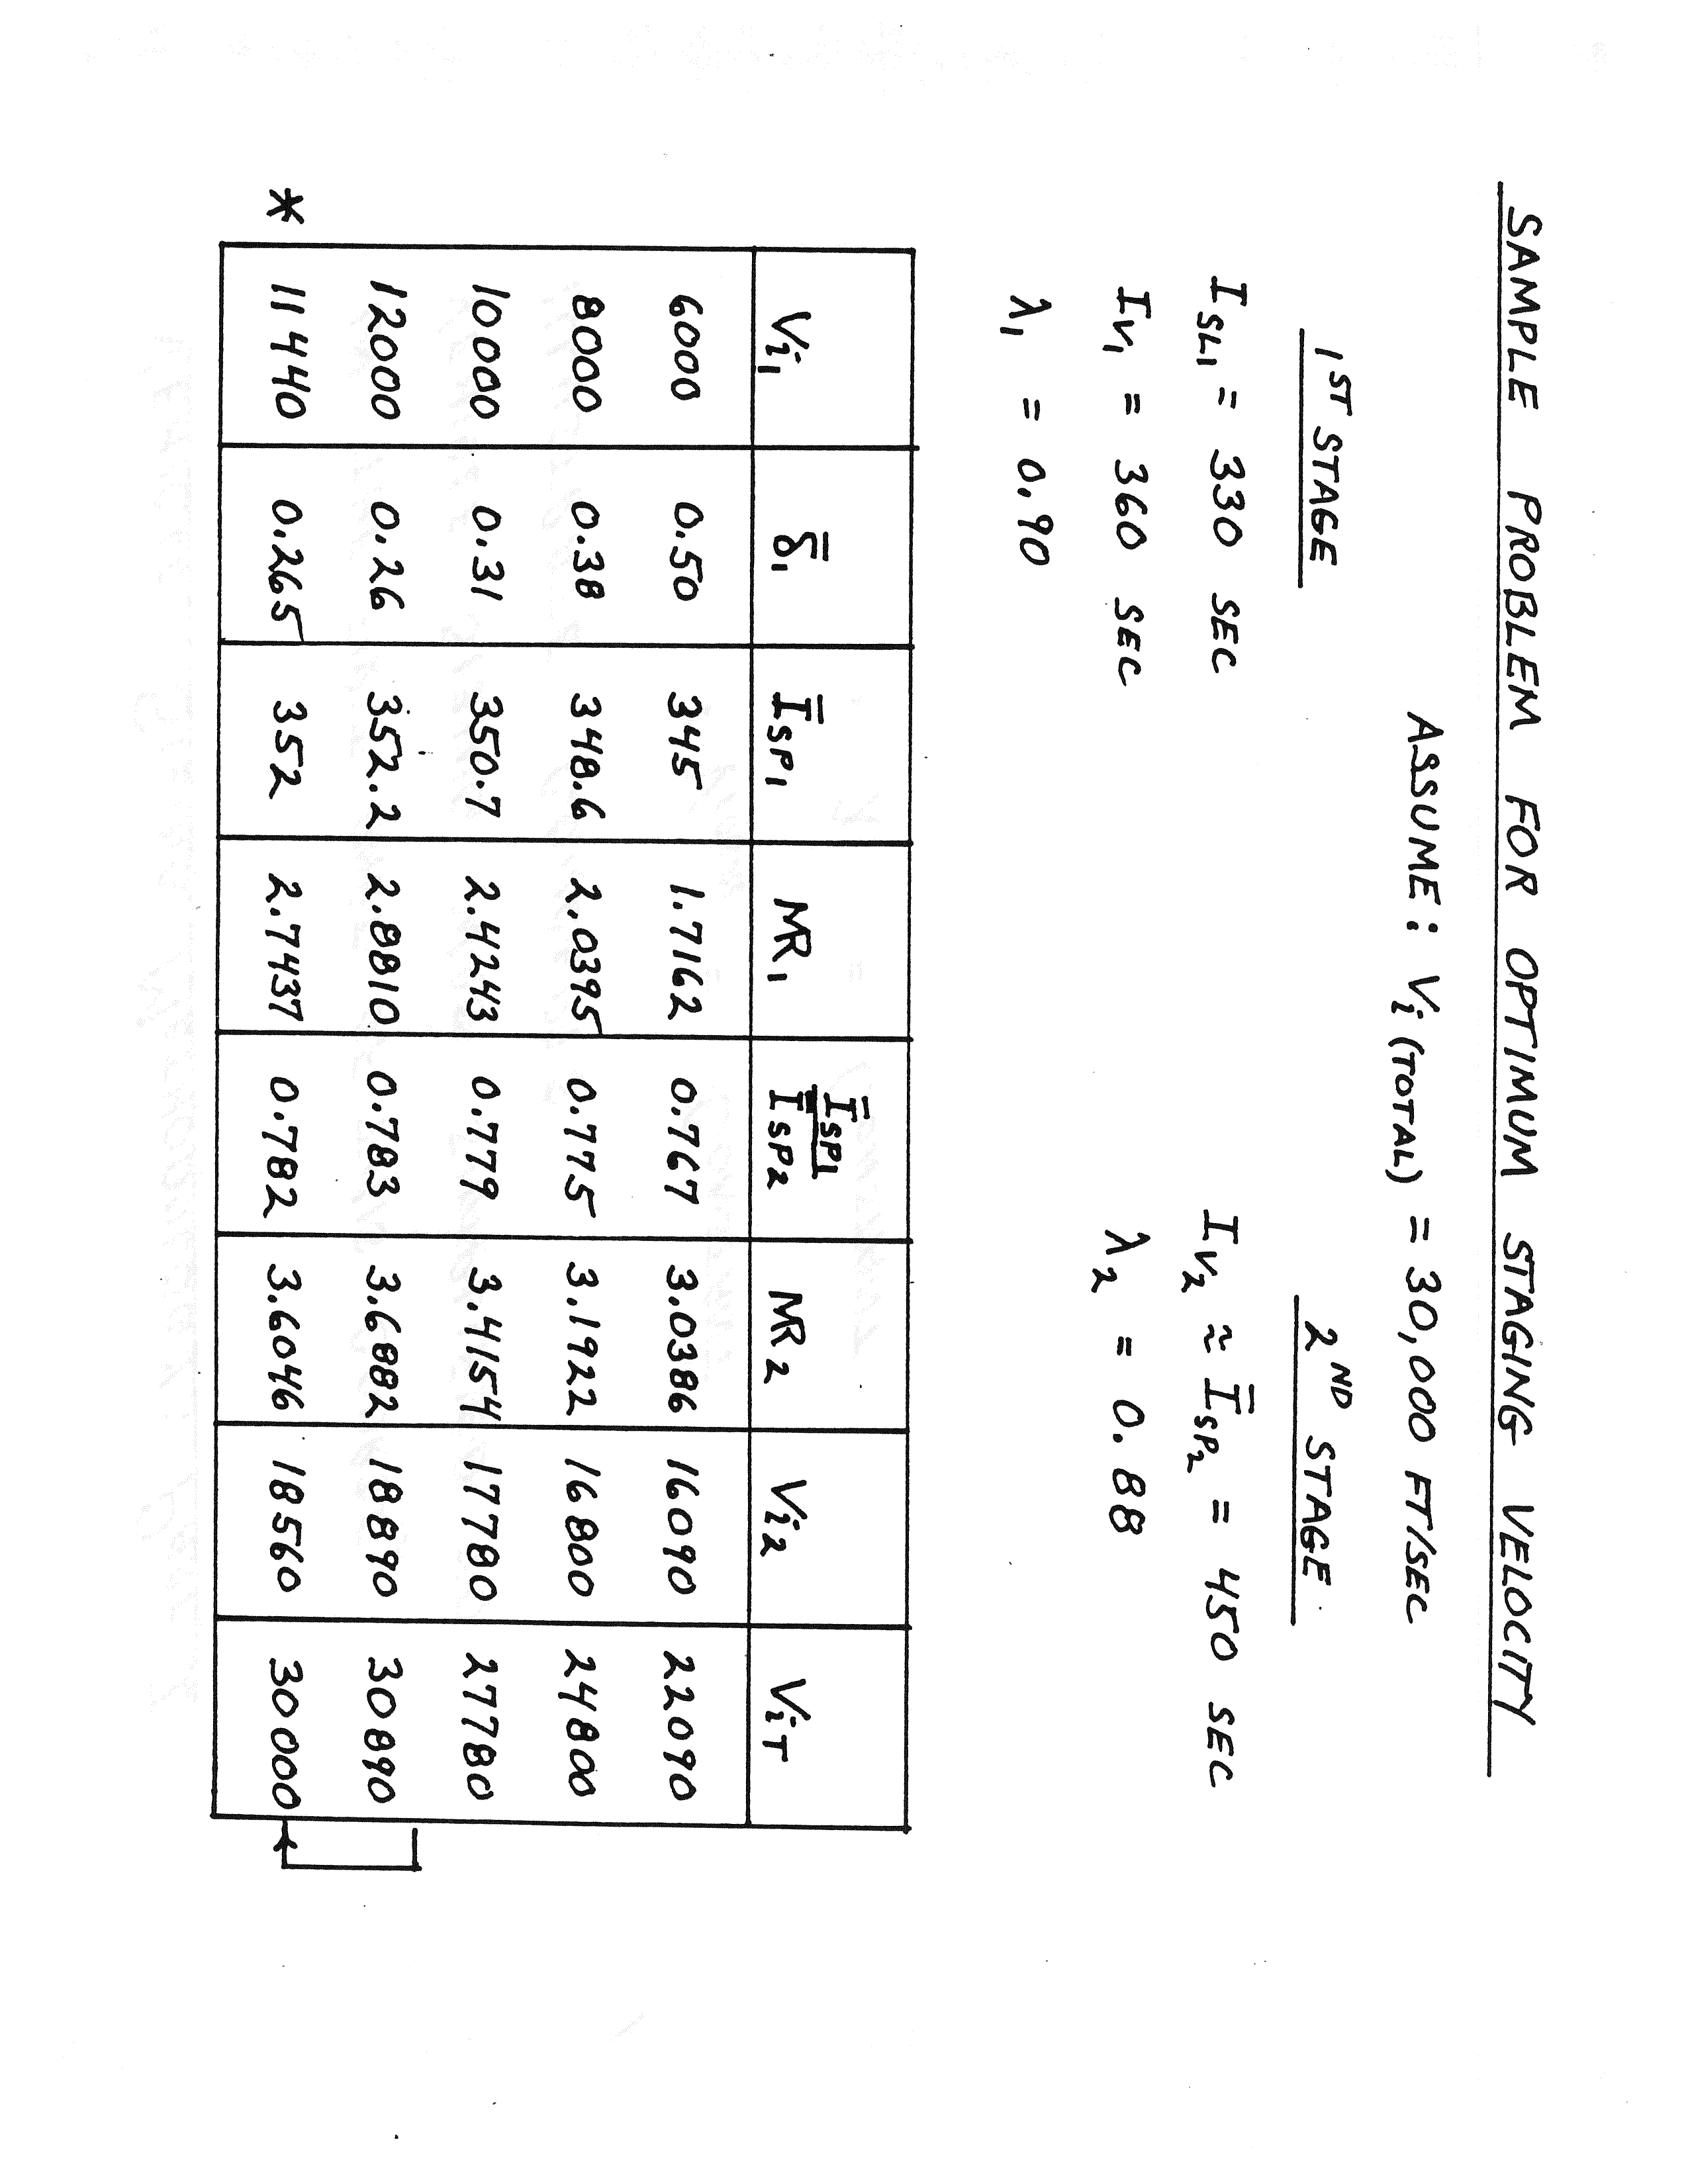 SAMPLE PROBLEM FOR OPTIMUM STAGING VELOCITY
ASSUME: Vi (TOTAL) = 30,000 FT/SEC
1ST STAGE
2ND STAGE
ISL1 = 330 SEC
IV2 ≈ ĪSP2 = 450 SEC
IV1 = 360 SEC
λ2 = 0.88
λ1 = 0.90
Vi1 δ̄1 ĪSP1 MR1 ĪSP1/ĪSP2 MR2 Vi2 ViT
6000 0.50 345 1.7162 0.767 3.0386 16090 22090
8000 0.38 348.6 2.0395 0.775 3.1922 16800 24800
10000 0.31 350.7 2.4243 0.779 3.4154 17780 27780
12000 0.26 352.2 2.8810 0.783 3.6882 18890 30890
* 11440 0.265 352 2.7437 0.782 3.6046 18560 30000